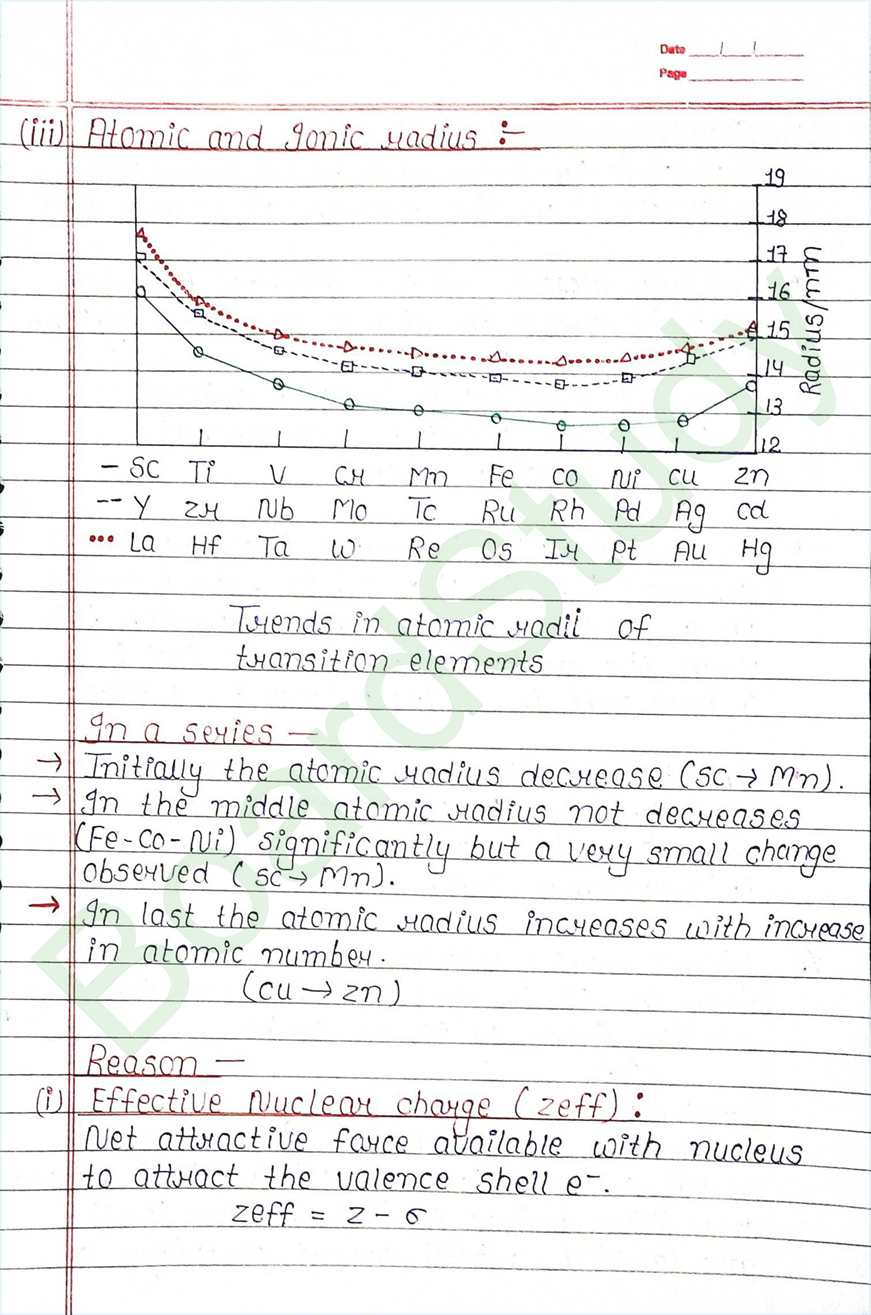 Date / /
Page
(iii) Atomic and Ionic radius :-
19
18
17
16
15
14
13
12
Radius/nm
— Sc Ti V Cr Mn Fe Co Ni Cu Zn
-- Y Zr Nb Mo Tc Ru Rh Pd Ag Cd
••• La Hf Ta W Re Os Ir Pt Au Hg
Trends in atomic radii of
transition elements
In a series —
→ Initially the atomic radius decrease (Sc → Mn).
→ In the middle atomic radius not decreases
(Fe-Co-Ni) significantly but a very small change
observed (Sc → Mn).
→ In last the atomic radius increases with increase
in atomic number.
(Cu → Zn)
Reason —
(i) Effective Nuclear charge (zeff) :
Net attractive farce available with nucleus
to attract the valence shell e⁻.
zeff = z - σ
BoardStudy